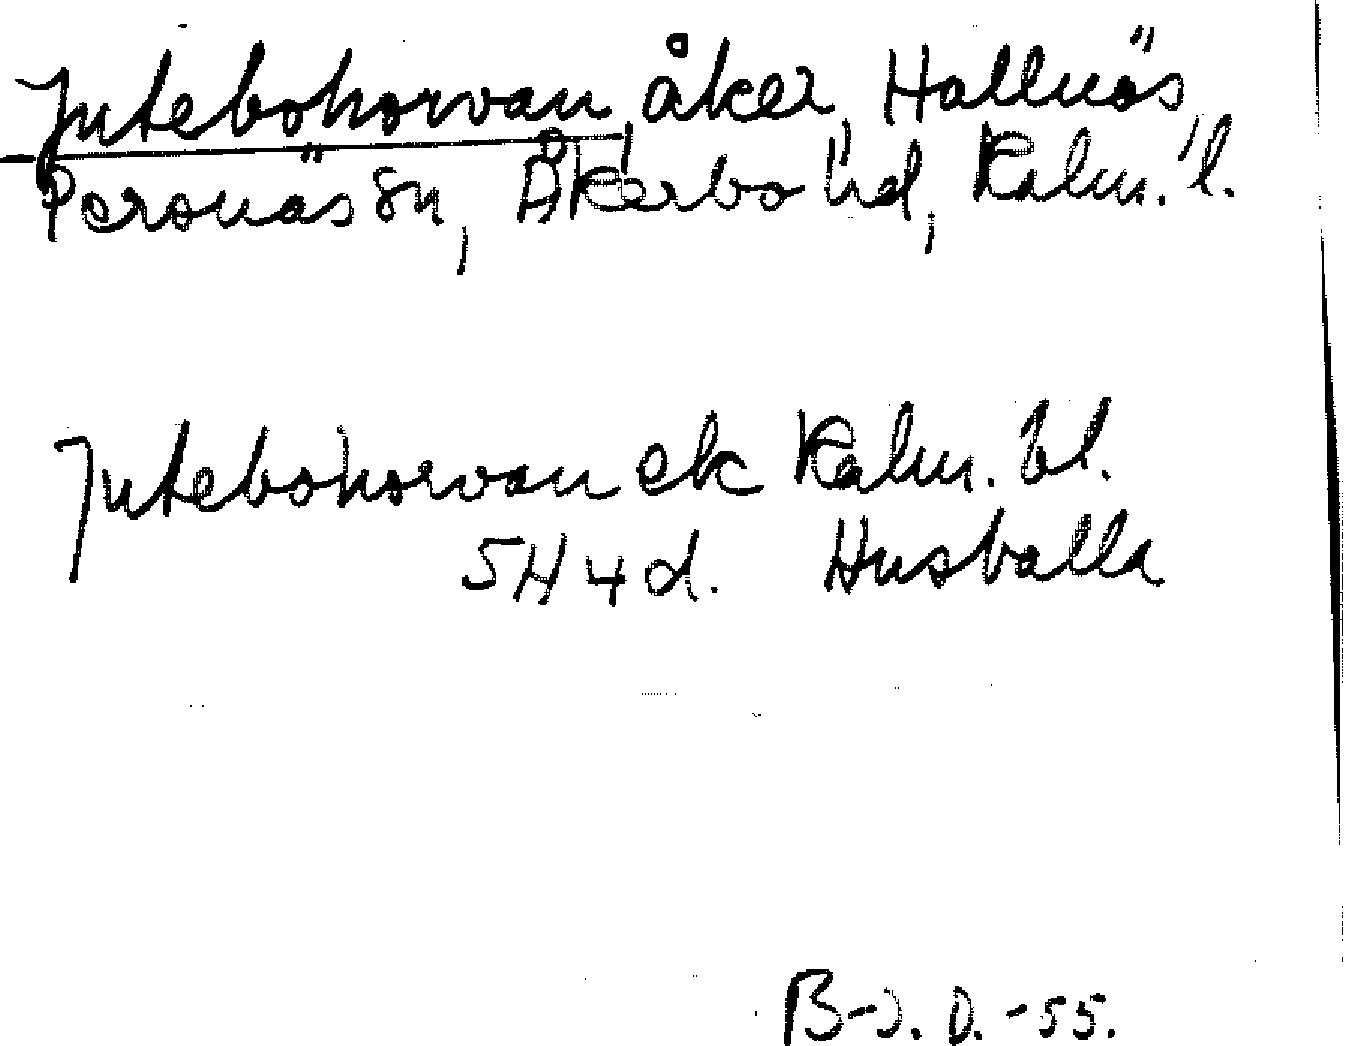 Jutebohorvan, åker, Hallnäs
Persnäs sn, Åkerbo hd, Kalm. l.
Jutebohorvan ek Kalm. bl.
5H4d. Husvalla
B-J. D. -55.